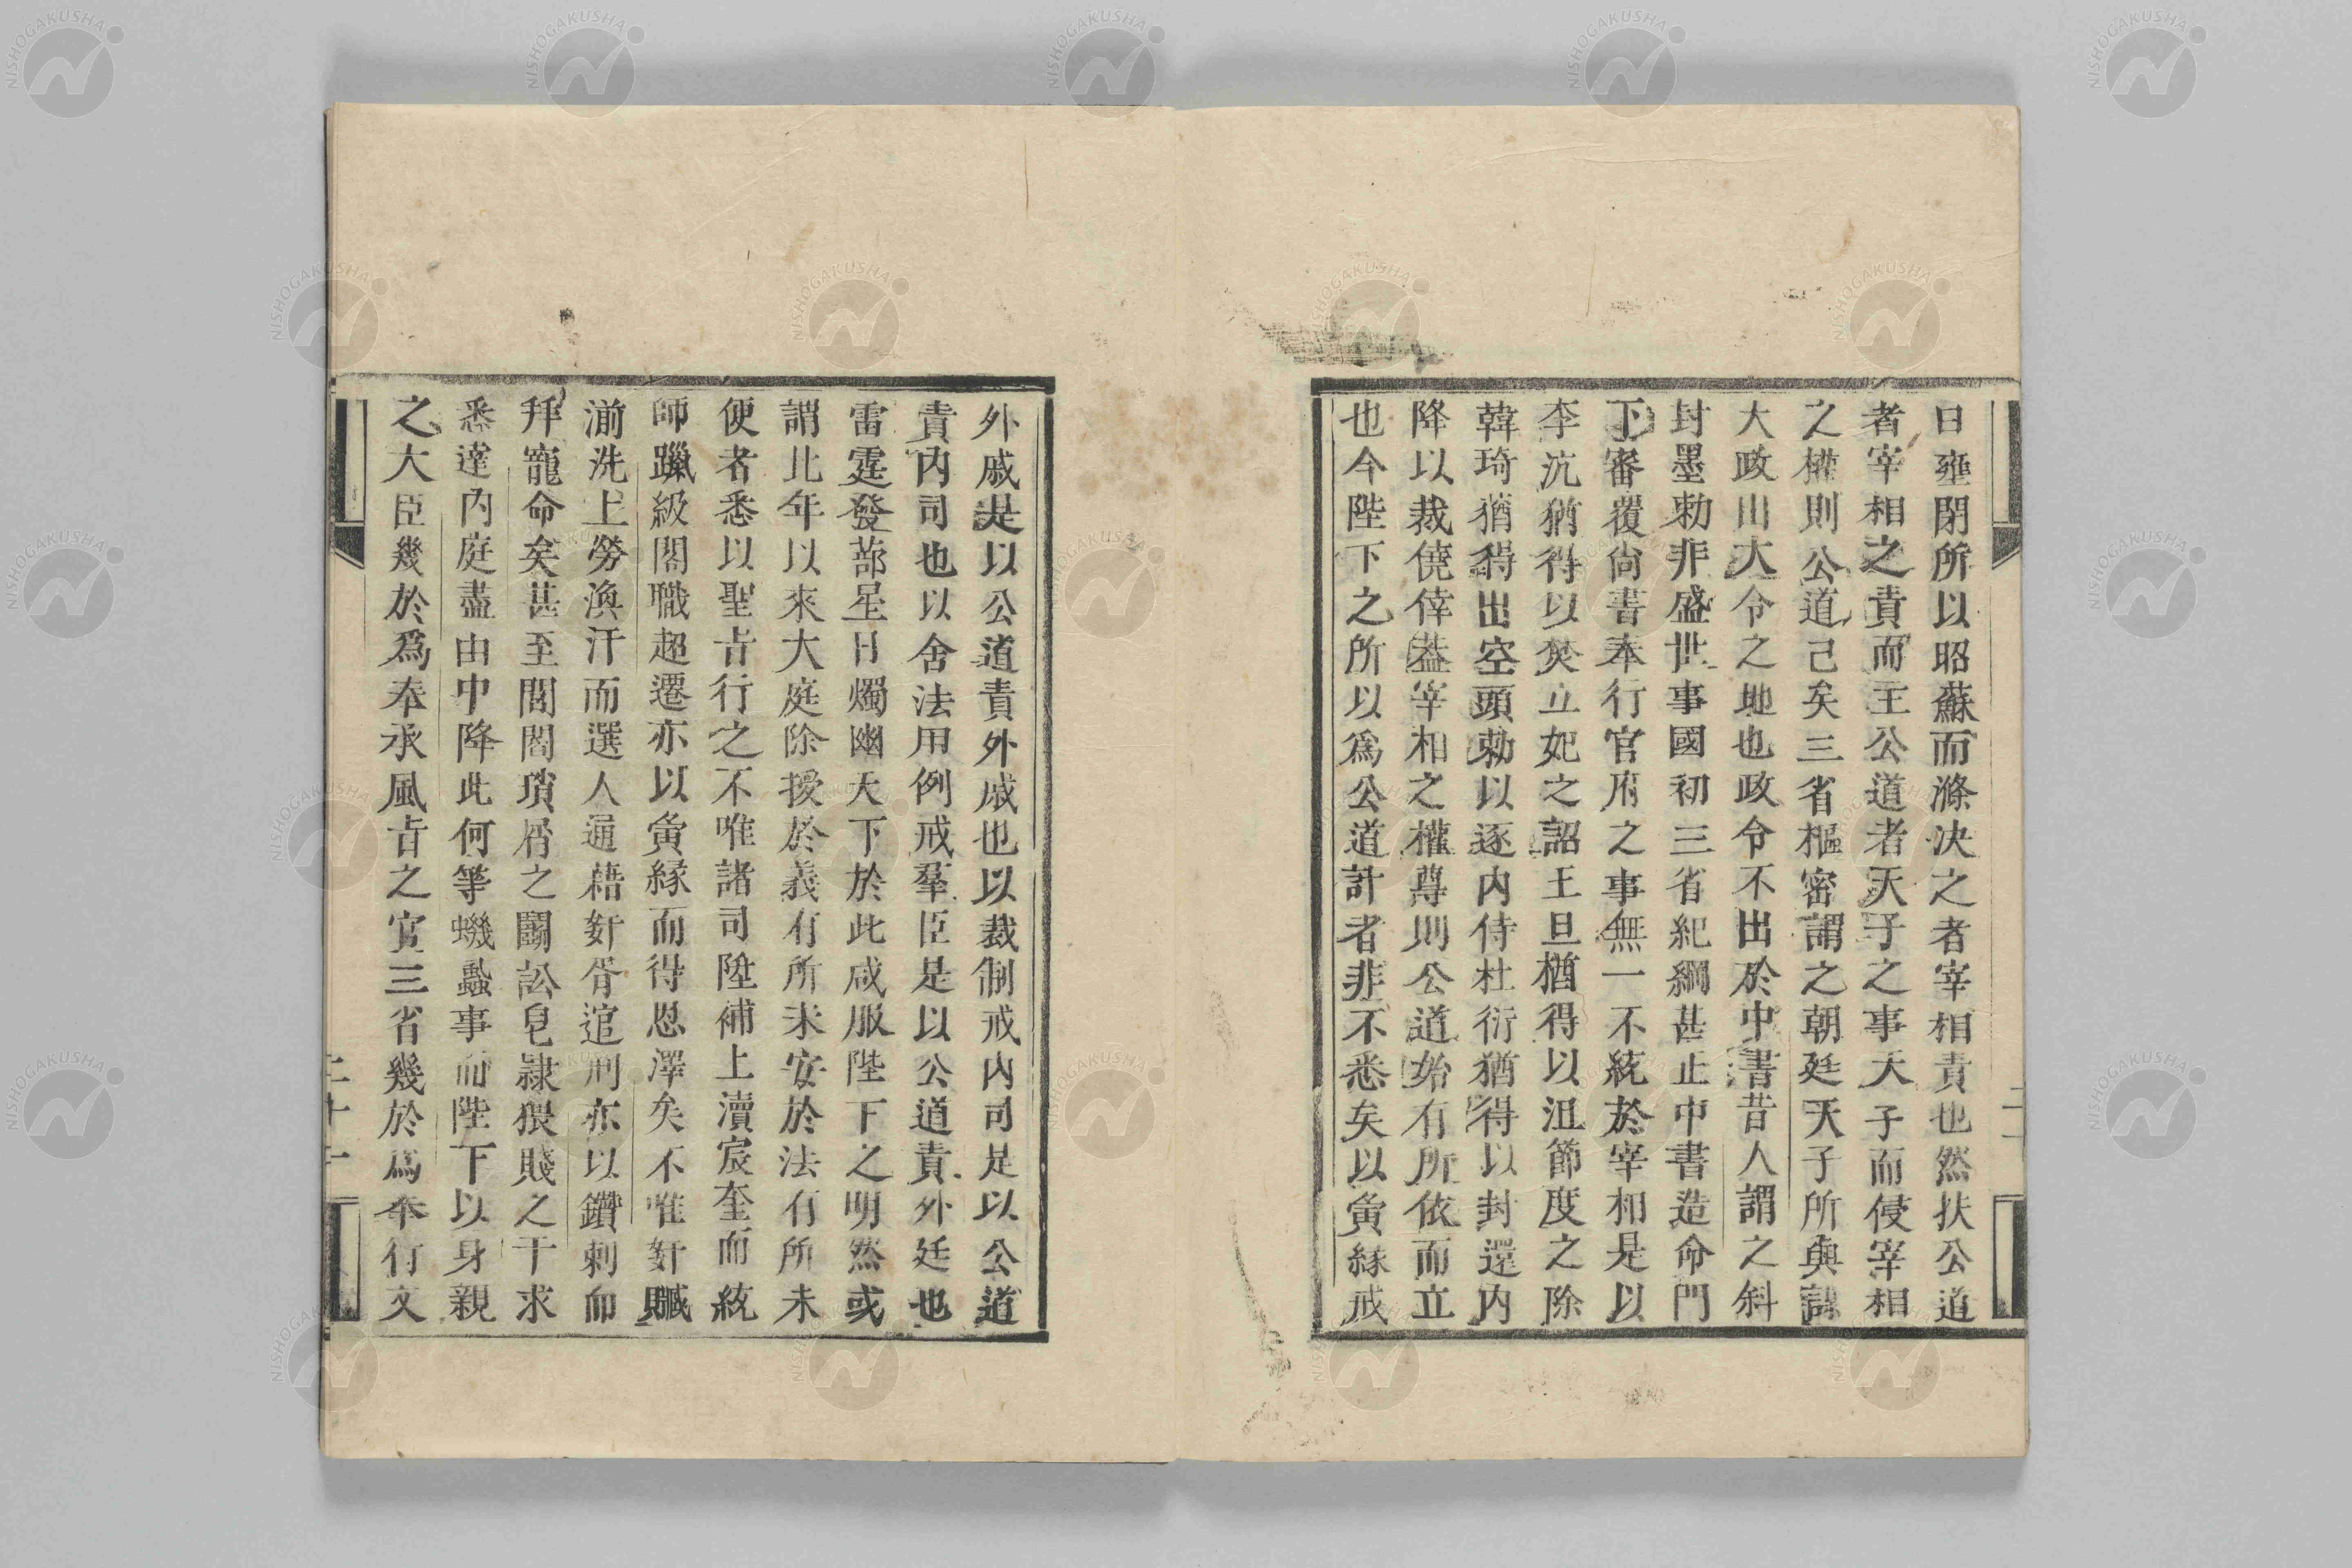 日壅閉所以昭蘇而滌決之者宰相責也然扶公道
者宰相之責而主公道者天子之事天子而侵宰相
之權則公道已矣三省樞密謂之朝廷天子所與謀
大政出大令之地也政令不出於中書昔人謂之斜
封墨勅非盛世事國初三省紀綱甚正中書造命門
下審覆尙書奉行官府之事無一不統於宰相是以
李沆猶得以焚立妃之詔王旦猶得以沮節度之除
韓琦猶得出空頭勅以逐內侍杜衍猶得以封還內
降以裁僥倖葢宰相之權尊則公道始有所依而立
也今陛下之所以爲公道計者非不悉矣以夤緣戒
外戚是以公道責外戚也以裁制戒內司是以公道
責內司也以舍法用例戒羣臣是以公道責外廷也
雷霆發蔀星日燭幽天下於此咸服陛下之明然或
謂比年以來大庭除授於義有所未安於法有所未
便者悉以聖旨行之不唯諸司陞補上瀆宸奎而統
師躐級閣職超遷亦以夤緣而得恩澤矣不唯奸贓
湔洗上勞渙汗而選人通藉奸胥逭刑亦以鑽刺而
拜寵命矣甚至閭閻瑣屑之鬬訟皂隷猥賤之干求
悉達內庭盡由中降此何等蟣蝨事而陛下以身親
之大臣幾於爲奉承風旨之官三省幾於爲奉行文
二十一
NISHOGAKUSHA